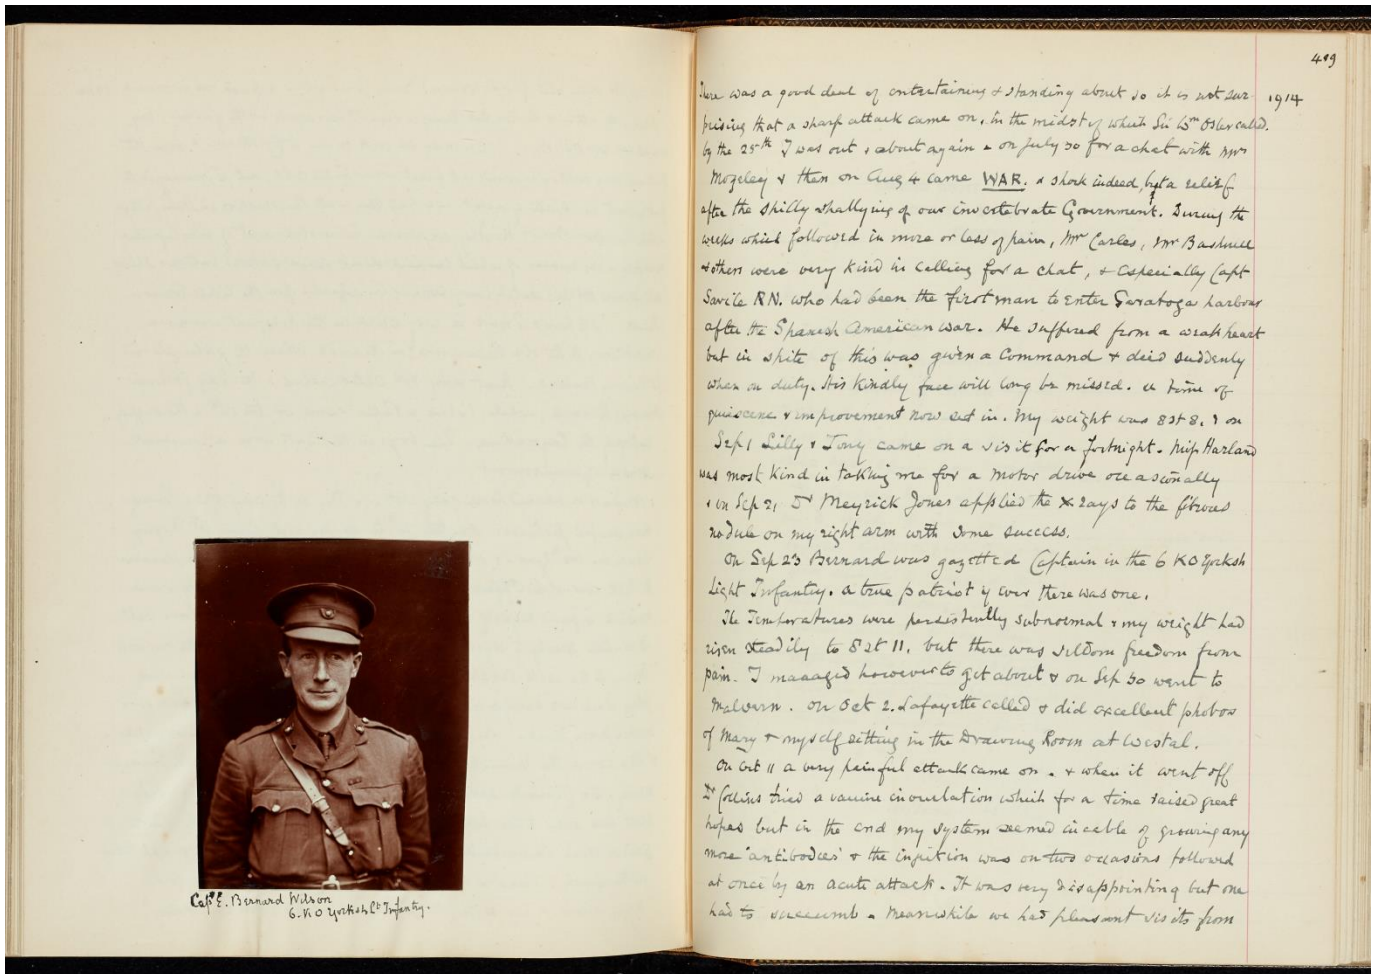 Capt E. Bernard Wilson
6. K O Yorksh Lt Infantry.
409
1914
There was a good deal of entertaining & standing about so it is not sur-
prising that a sharp attack came on, in the midst of which Sir Wm Osler called.
by the 25th I was out & about again & on July 30 for a chat with Mrs
Mozeley & then on Aug 4 came WAR. a shock indeed, but a relief
after the shilly shallying of our invertebrate Government. During the
weeks which followed in more or less of pain, Mr Carles, Mr Bashall
& others were very kind in calling for a chat, & especially Capt
Savile RN. who had been the first man to enter Saratoga harbour
after the Spanish American war. He suffered from a weak heart
but in spite of this was given a Command & died suddenly
when on duty. His kindly face will long be missed. a time of
quiescence & improvement now set in. My weight was 8 st 8. & on
Sep 1 Lilly & Tony came on a visit for a fortnight. Miss Harland
was most kind in taking me for a motor drive occasionally
& on Sep 21 Dr Meyrick Jones applied the X rays to the fibrous
nodule on my right arm with some success.
On Sep 23 Bernard was gazetted Captain in the 6 K O Yorksh
Light Infantry. a true patriot if ever there was one.
The Temperatures were persistently subnormal & my weight had
risen steadily to 8 st 11, but there was seldom freedom from
pain. I managed however to get about & on Sep 30 went to
Malvern. On Oct 2. Lafayette called & did excellent photos
of Mary & myself sitting in the Drawing Room at Westal.
On Oct 11 a very painful attack came on. & when it went off
Dr Collins tried a vaccine inoculation which for a time raised great
hopes but in the end my system seemed incable of growing any
more 'antibodies' & the injection was on two occasions followed
at once by an acute attack. It was very disappointing but one
had to succumb. Meanwhile we had pleasant visits from